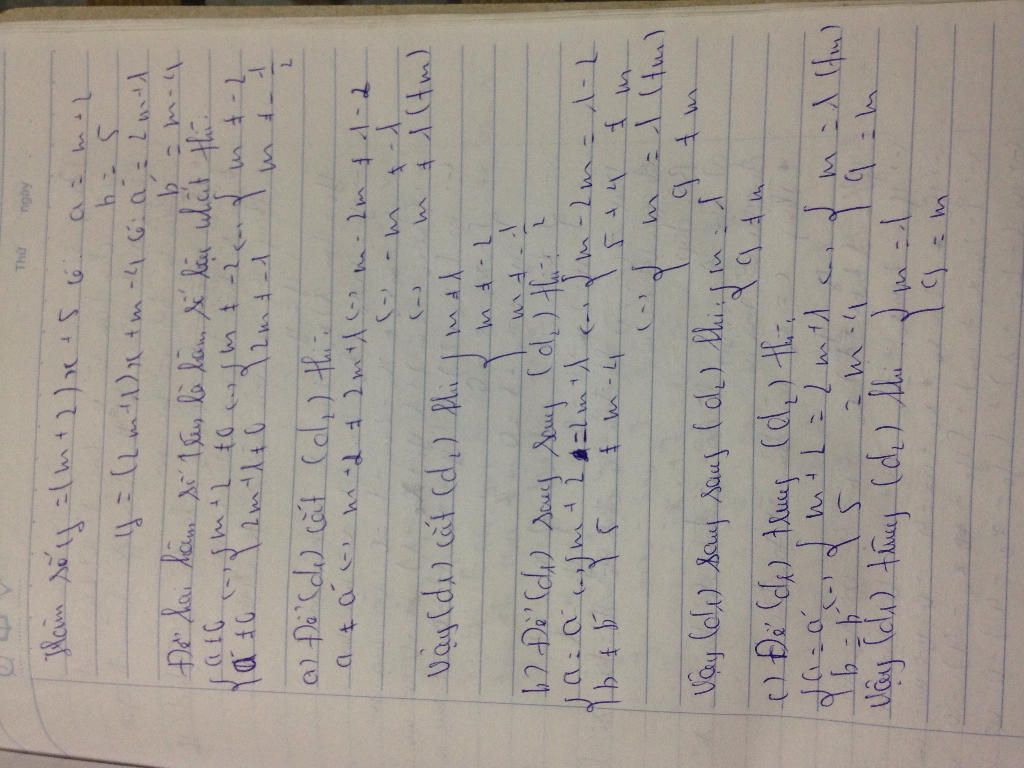 Thứ ngày
Hàm số y = (m + 2)x + 5 có: a = m + 2
b = 5
y = (2m+1)x + m - 4 có: a' = 2m+1
b' = m - 4
Để hai hàm số trên là hàm số bậc nhất thì:
{ a ≠ 0 <-> { m + 2 ≠ 0 <-> { m ≠ -2 <-> { m ≠ -2
{ a' ≠ 0 { 2m+1 ≠ 0 { 2m ≠ -1 { m ≠ -1/2
a) Để (d1) cắt (d2) thì:
a ≠ a' <-> m + 2 ≠ 2m+1 <-> m - 2m ≠ 1 - 2
<-> -m ≠ -1
<-> m ≠ 1 (tm)
Vậy (d1) cắt (d2) thì { m ≠ 1
{ m ≠ -2
{ m ≠ -1/2
b) Để (d1) song song (d2) thì:
{ a = a' <-> { m + 2 = 2m+1 <-> { m - 2m = 1 - 2
{ b ≠ b' { 5 ≠ m - 4 { 5 + 4 ≠ m
<-> { m = 1 (tm)
{ 9 ≠ m
Vậy (d1) song song (d2) thì { m = 1
{ 9 ≠ m
c) Để (d1) trùng (d2) thì:
{ a = a' <-> { m + 2 = 2m+1 <-> { m = 1 (tm)
{ b = b' { 5 = m - 4 { 9 = m
Vậy (d1) trùng (d2) thì { m = 1
{ 9 = m